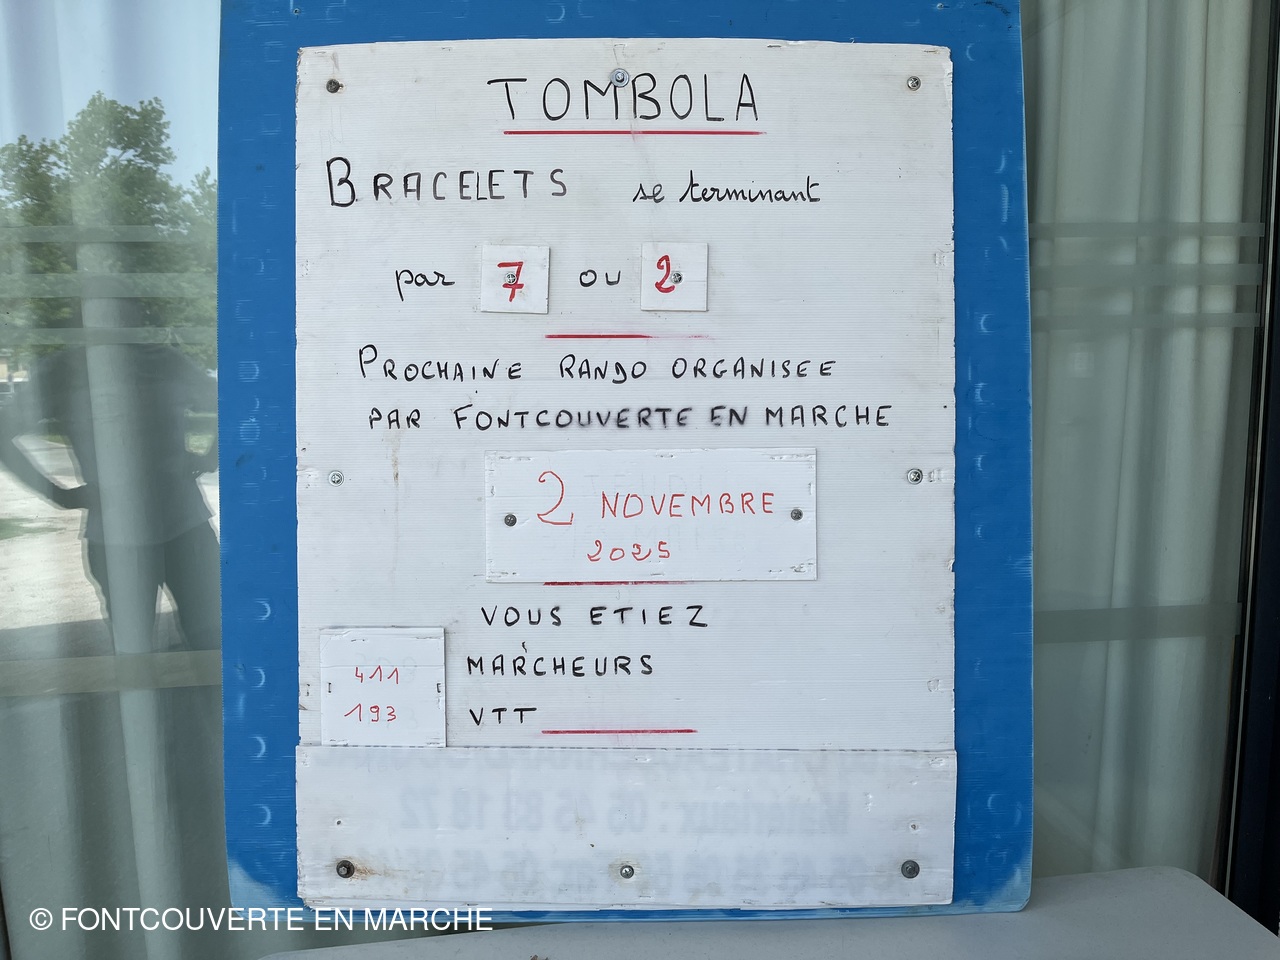 TOMBOLA
BRACELETS se terminant
par 7 ou 2
PROCHAINE RANDO ORGANISEE
PAR FONTCOUVERTE EN MARCHE
2 NOVEMBRE
2025
VOUS ETIEZ
411 MARCHEURS
193 VTT
© FONTCOUVERTE EN MARCHE